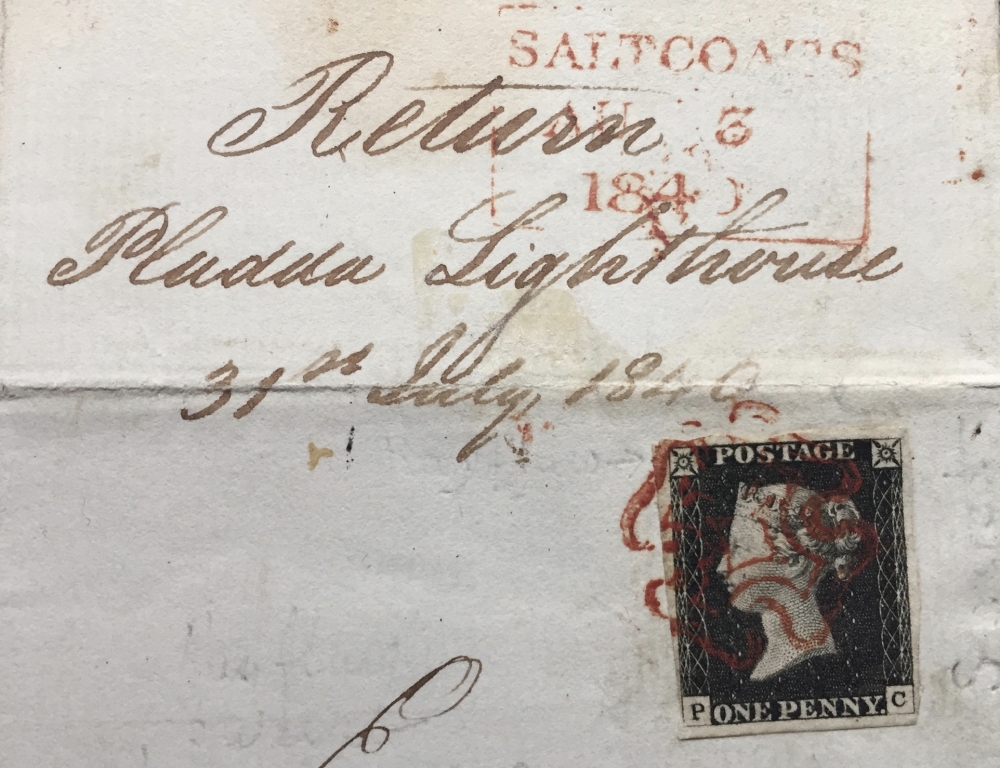 SALTCOATS
AU 3
1840
Return
Pladda Lighthouse
31st July, 1840
POSTAGE
P ONE PENNY. C